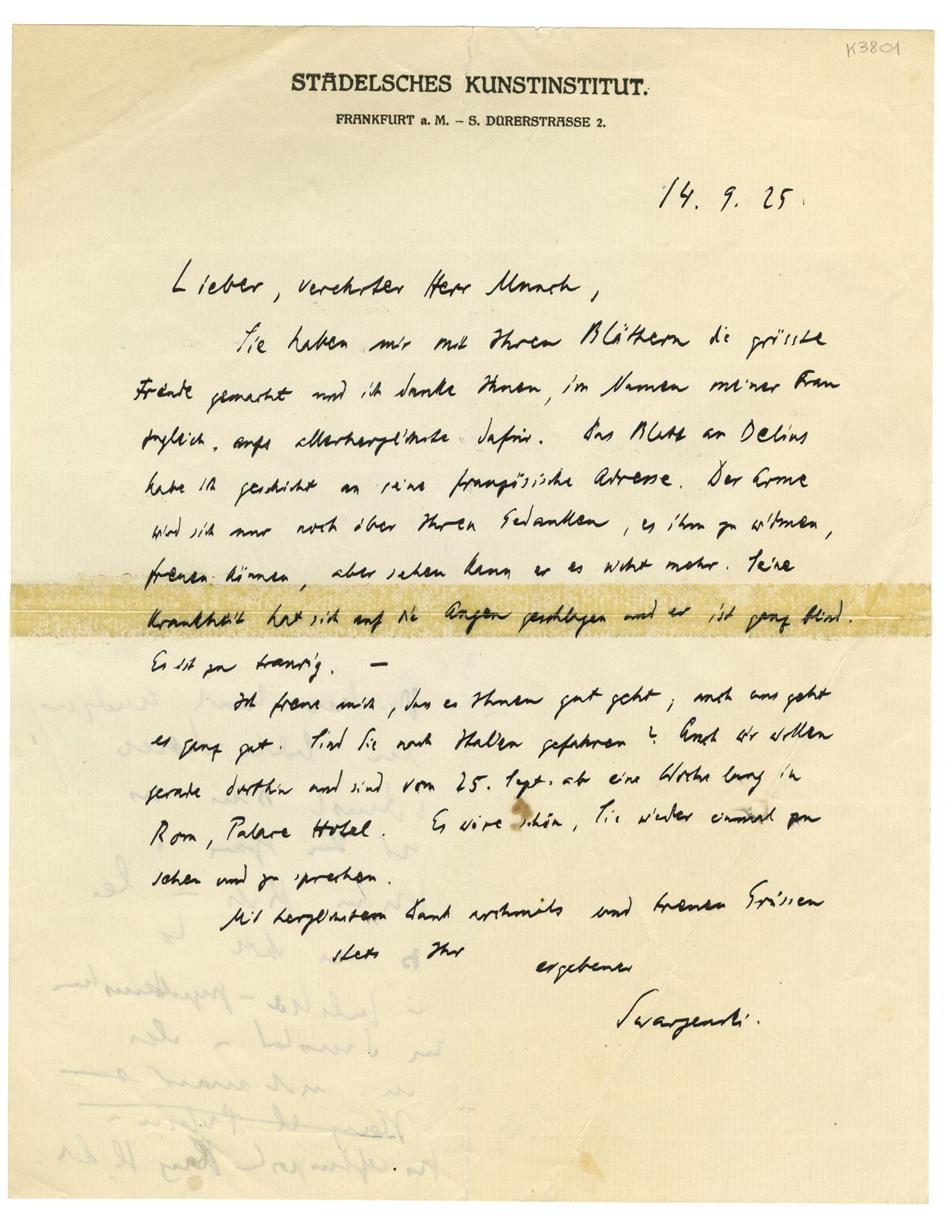 K3801
STÄDELSCHES KUNSTINSTITUT.
FRANKFURT a. M. – S. DÜRERSTRASSE 2.
14. 9. 25.
Lieber, verehrter Herr Munch,
Sie haben mir mit Ihren Blättern die grösste
Freude gemacht und ich danke Ihnen, im Namen meiner Frau
zugleich, aufs allerherzlichste dafür. Das Blatt an Delius
habe ich geschickt an seine französische Adresse. Der Arme
wird sich nur noch über Ihren Gedanken, es ihm zu widmen,
freuen können, aber sehen kann er es nicht mehr. Seine
Krankheit hat sich auf die Augen geschlagen und er ist ganz blind.
Es ist zu traurig. —
Ich freue mich, dass es Ihnen gut geht; auch uns geht
es ganz gut. Sind Sie nach Italien gefahren? Auch wir wollen
gerade dorthin und sind vom 25. Sept. ab eine Woche lang in
Rom, Palace Hotel. Es wäre schön, Sie wieder einmal zu
sehen und zu sprechen.
Mit herzlichstem Dank nochmals und treuen Grüssen
stets Ihr
ergebener
Swarzenski.